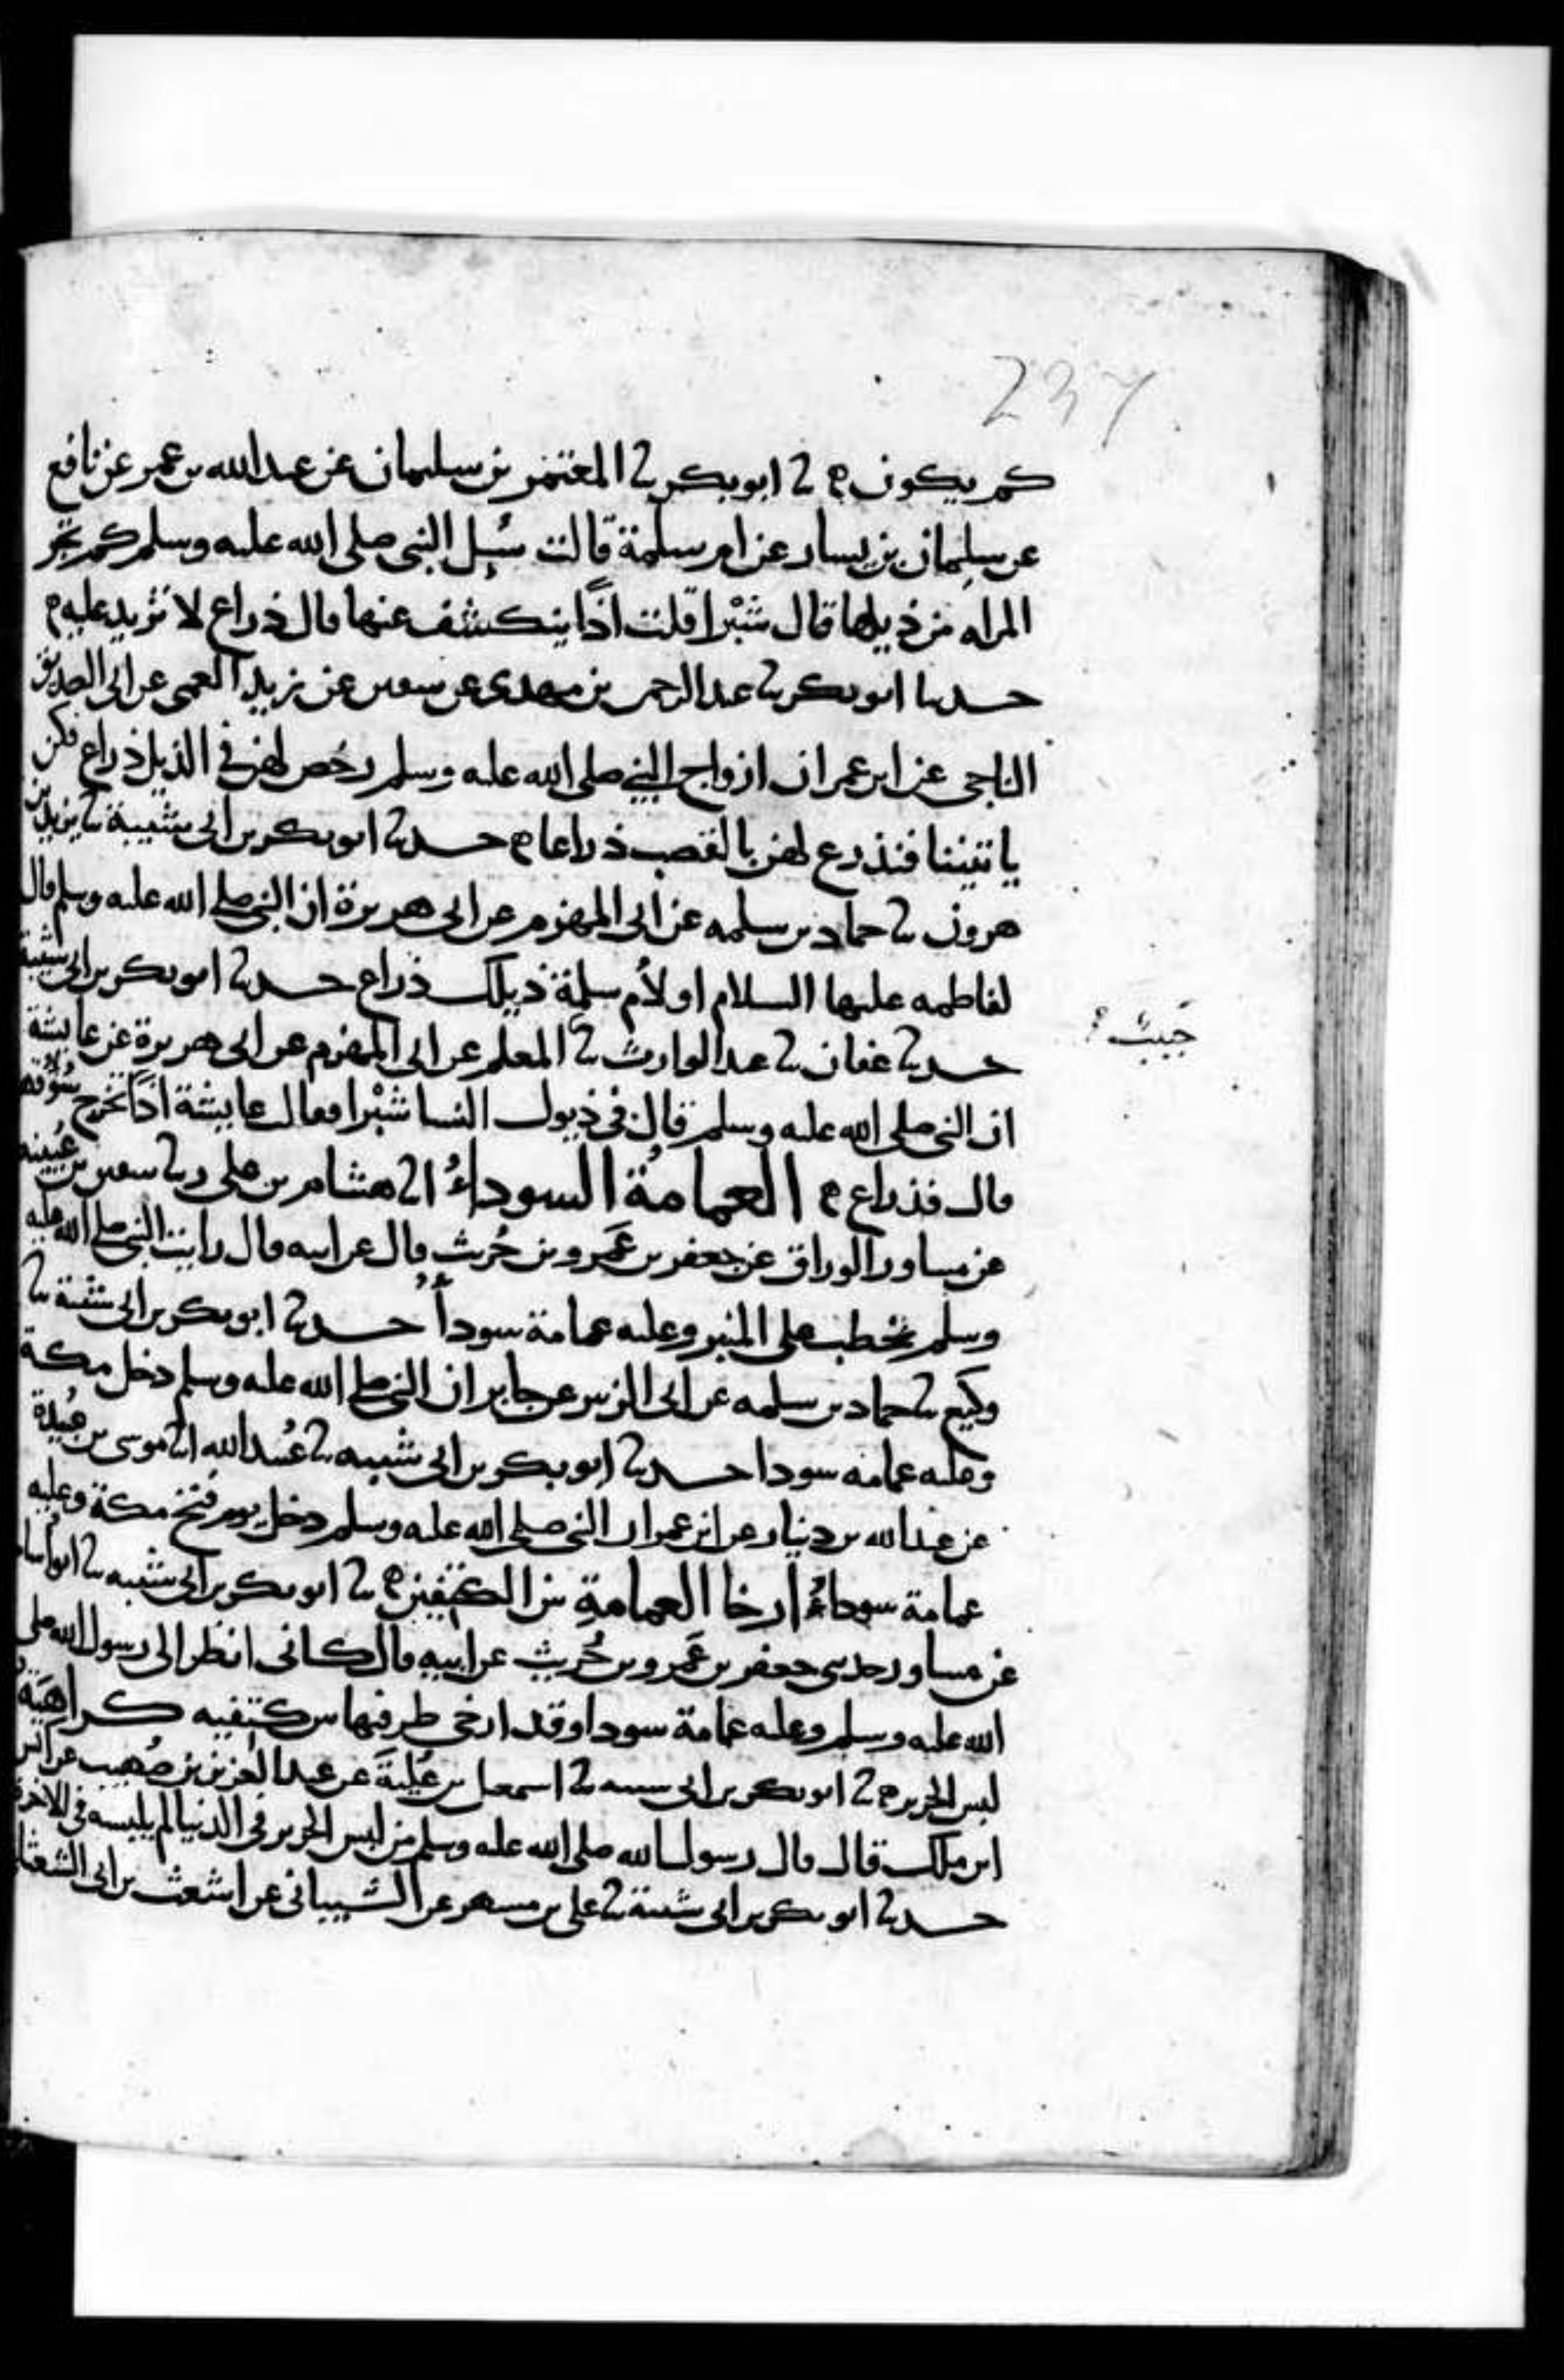 237
كم يكون ثنا ابو بكر ثنا المعتمر بن سليمان عن عبد الله بن عمر عن نافع
عن سليمان بن يسار عن ام سلمة قالت سُيل النبى صلى الله عليه وسلم كم تجر
المراه من ذيلها قال شبْرا قلت اذًا ينكشف عنها قال ذراع لا تزيد عليه
حدثنا ابو بكر ثنا عبد الرحمن بن مهدى عن سفين عن زيد العمى عن ابى الصديق
الناجى عن ابن عمر ان ازواج النبي صلى الله عليه وسلم رخُص لهن في الذيل ذراع فكن
ياتيننا فنذرع لهن بالقصب ذراعا حدثنا ابو بكر بن ابى شيبة ثنا يزيد بن
هرون ثنا حماد بن سلمه عن ابى المهزم عن ابى هريرة ان النبى صلى الله عليه وسلم قال
لفاطمه عليها السلام او لأم سلمة ذيلك ذراع حدثنا ابو بكر بن ابى شيبة
حدثنا عفان ثنا عبد الوارث ثنا المعلم عن ابى المهزم عن ابى هريرة عن عايشة
حَبيبٌ
ان النبى صلى الله عليه وسلم قال فى ذيول النسا شبْرا فقالت عايشة اذًا تخرج سُوقهن
قال فذراع العمامةُ السوداءُ انا هشام بن علي ثنا سفين بن عُيينه
عن مساور الوراق عن جعفر بن عَمرو بن حُريث قال عن ابيه قال رايت النبى صلى الله عليه
وسلم يخطب على المنبر وعليه عمامة سودأُ حدثنا ابو بكر بن ابى شيبة ثنا
وكَيع ثنا حماد بن سلمه عن ابى الزبير عن جابر ان النبى صلى الله عليه وسلم دخل مكة
وعليه عمامه سودا حدثنا ابو بكر بن ابى شيبه ثنا عُبيد الله انا موسى بن عُبيدة
عن عبد الله بن دينار عن ابن عمر ان النبى صلى الله عليه وسلم دخل يوم فتح مكة وعليه
عمامة سوداءُ ارخا العمامةِ بين الكتفين ثنا ابو بكر بن ابى شيبه ثنا ابو اُسامة
عن مساور حدثنى جعفر بن عَمرو بن حُريث عن ابيه قال كانى انظر الى رسول الله صلى
الله عليه وسلم وعليه عمامة سودا وقد ارخى طرفيها بين كتفيه كراهيَة
لبس الحرير ثنا ابو بكر بن ابى شيبه ثنا اسمعيل بن عُليَة عن عبد العزيز بن صُهيب عن انس
ابن ملك قال قال رسول الله صلى الله عليه وسلم من لبس الحرير فى الدنيا لم يلبسه فى الاخرة
حدثنا ابو بكر بن ابى شيبة ثنا على بن مسهر عن الشيبانى عن اشعث بن ابى الشعثا